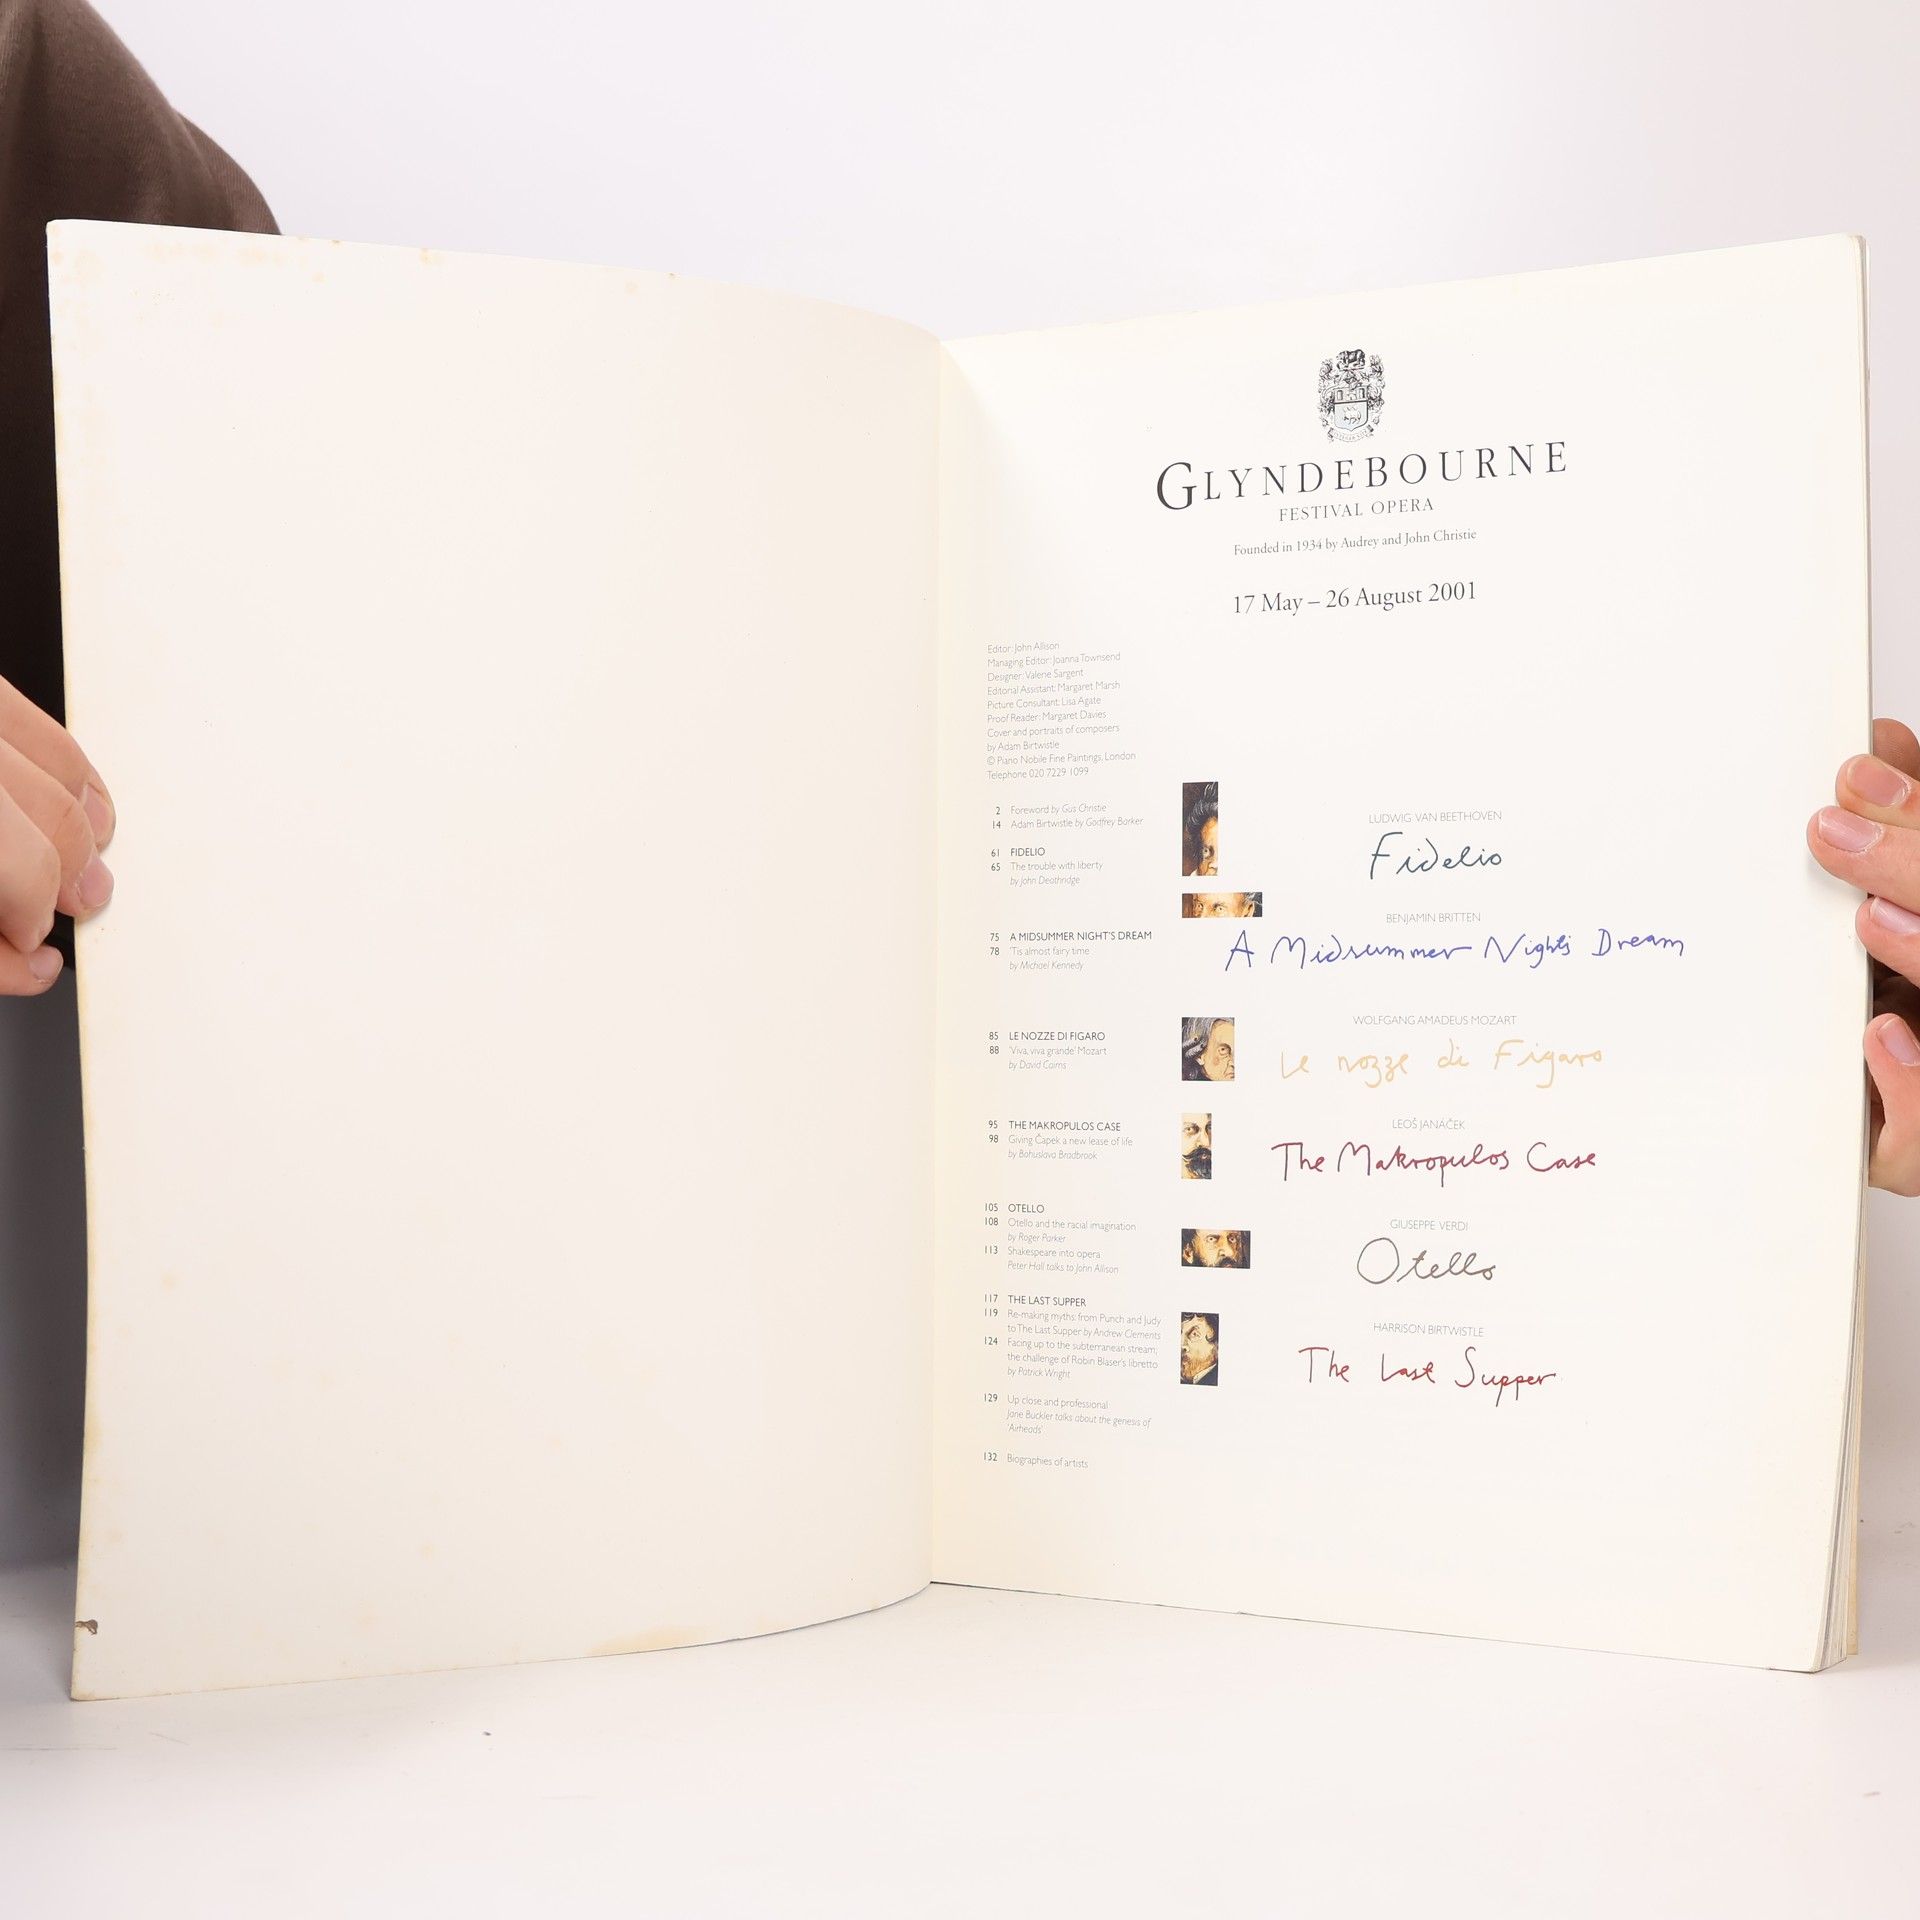 GLYNDEBOURNE
FESTIVAL OPERA
Founded in 1934 by Audrey and John Christie
17 May – 26 August 2001
Editor: John Allison
Managing Editor: Joanna Townsend
Designer: Valerie Sargent
Editorial Assistant: Margaret Marsh
Picture Consultant: Lisa Agate
Proof Reader: Margaret Davies
Cover and portraits of composers
by Adam Birtwistle
© Piano Nobile Fine Paintings, London
Telephone 020 7229 1099
2 Foreword by Gus Christie
14 Adam Birtwistle by Godfrey Barker
61 FIDELIO
65 The trouble with liberty
by John Deathridge
75 A MIDSUMMER NIGHT'S DREAM
78 'Tis almost fairy time
by Michael Kennedy
85 LE NOZZE DI FIGARO
88 'Viva, viva grande' Mozart
by David Cairns
95 THE MAKROPULOS CASE
98 Giving Čapek a new lease of life
by Bohuslava Bradbrook
105 OTELLO
108 Otello and the racial imagination
by Roger Parker
113 Shakespeare into opera
Peter Hall talks to John Allison
117 THE LAST SUPPER
119 Re-making myths: from Punch and Judy
to The Last Supper by Andrew Clements
124 Facing up to the subterranean stream;
the challenge of Robin Blaser's libretto
by Patrick Wright
129 Up close and professional
Jane Buckler talks about the genesis of
'Airheads'
132 Biographies of artists
LUDWIG VAN BEETHOVEN
Fidelio
BENJAMIN BRITTEN
A Midsummer Night's Dream
WOLFGANG AMADEUS MOZART
Le nozze di Figaro
LEOŠ JANÁČEK
The Makropulos Case
GIUSEPPE VERDI
Otello
HARRISON BIRTWISTLE
The Last Supper